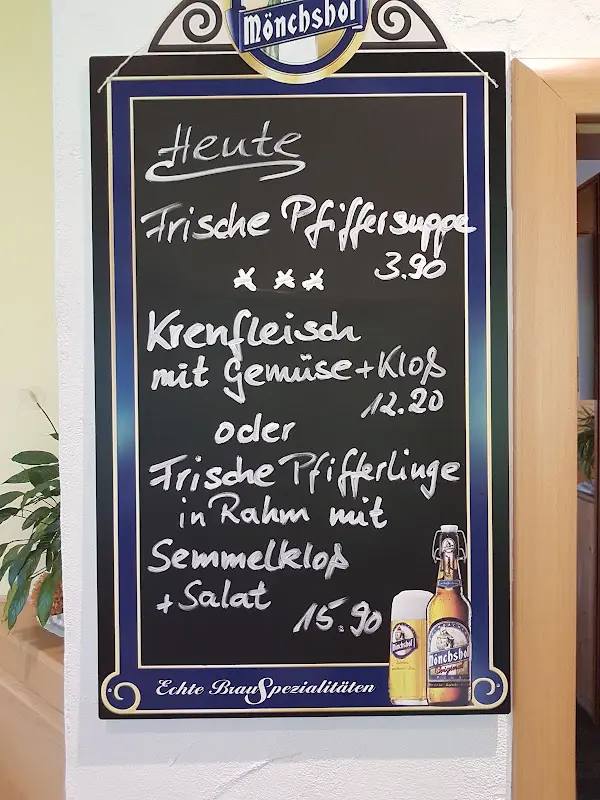 Mönchshof
Heute
Frische Pfiffersuppe
3.90
Krenfleisch
mit Gemüse + Kloß
12.20
oder
Frische Pfifferlinge
in Rahm mit
Semmelkloß
+ Salat
15.90
Mönchshof
Mönchshof
Echte BrauSpezialitäten